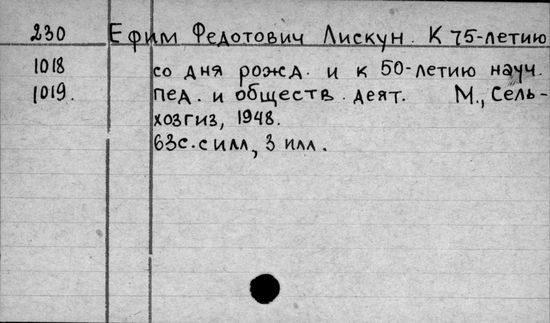 230 Ефим Федотович Лискун. К 75-летию
1018 со дня рожд. и к 50-летию науч.
1019. пед. и обществ. деят. М., Сель-
хозгиз, 1948.
63с. с илл., 3 илл.